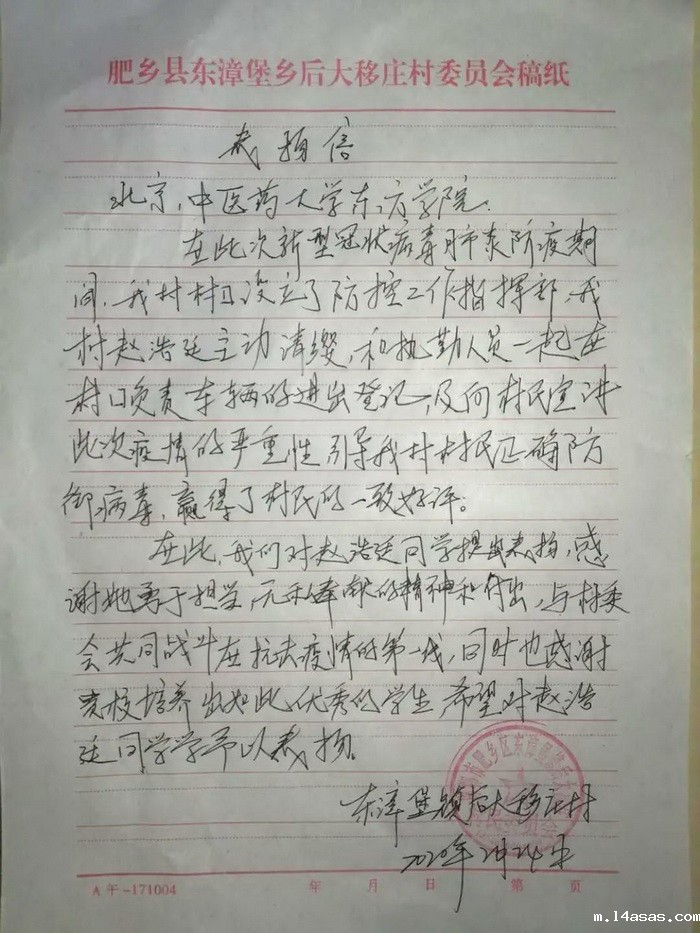 肥乡县东漳堡乡后大移庄村委员会稿纸
表扬信
北京,中医药大学东方学院.
在此次新型冠状病毒肺炎防疫期
间.我村村口设立了防控工作指挥部,我
村赵浩廷主动请缨,和执勤人员一起在
村口负责车辆的进出登记,及向村民宣讲
此次疫情的严重性引导我村村民正确防
御病毒,赢得了村民的一致好评。
在此,我们对赵浩廷同学提出表扬,感
谢她勇于担当,无私奉献的精神和付出,与村委
会共同战斗在抗击疫情的第一线,同时也感谢
贵校培养出如此优秀的学生 希望对赵浩
廷同学学予以表扬.
东漳堡镇后大移庄村
2020年2月24日
肥乡区东漳堡镇后大
A午-171004 年 月 日 第 页
m.14asas.com